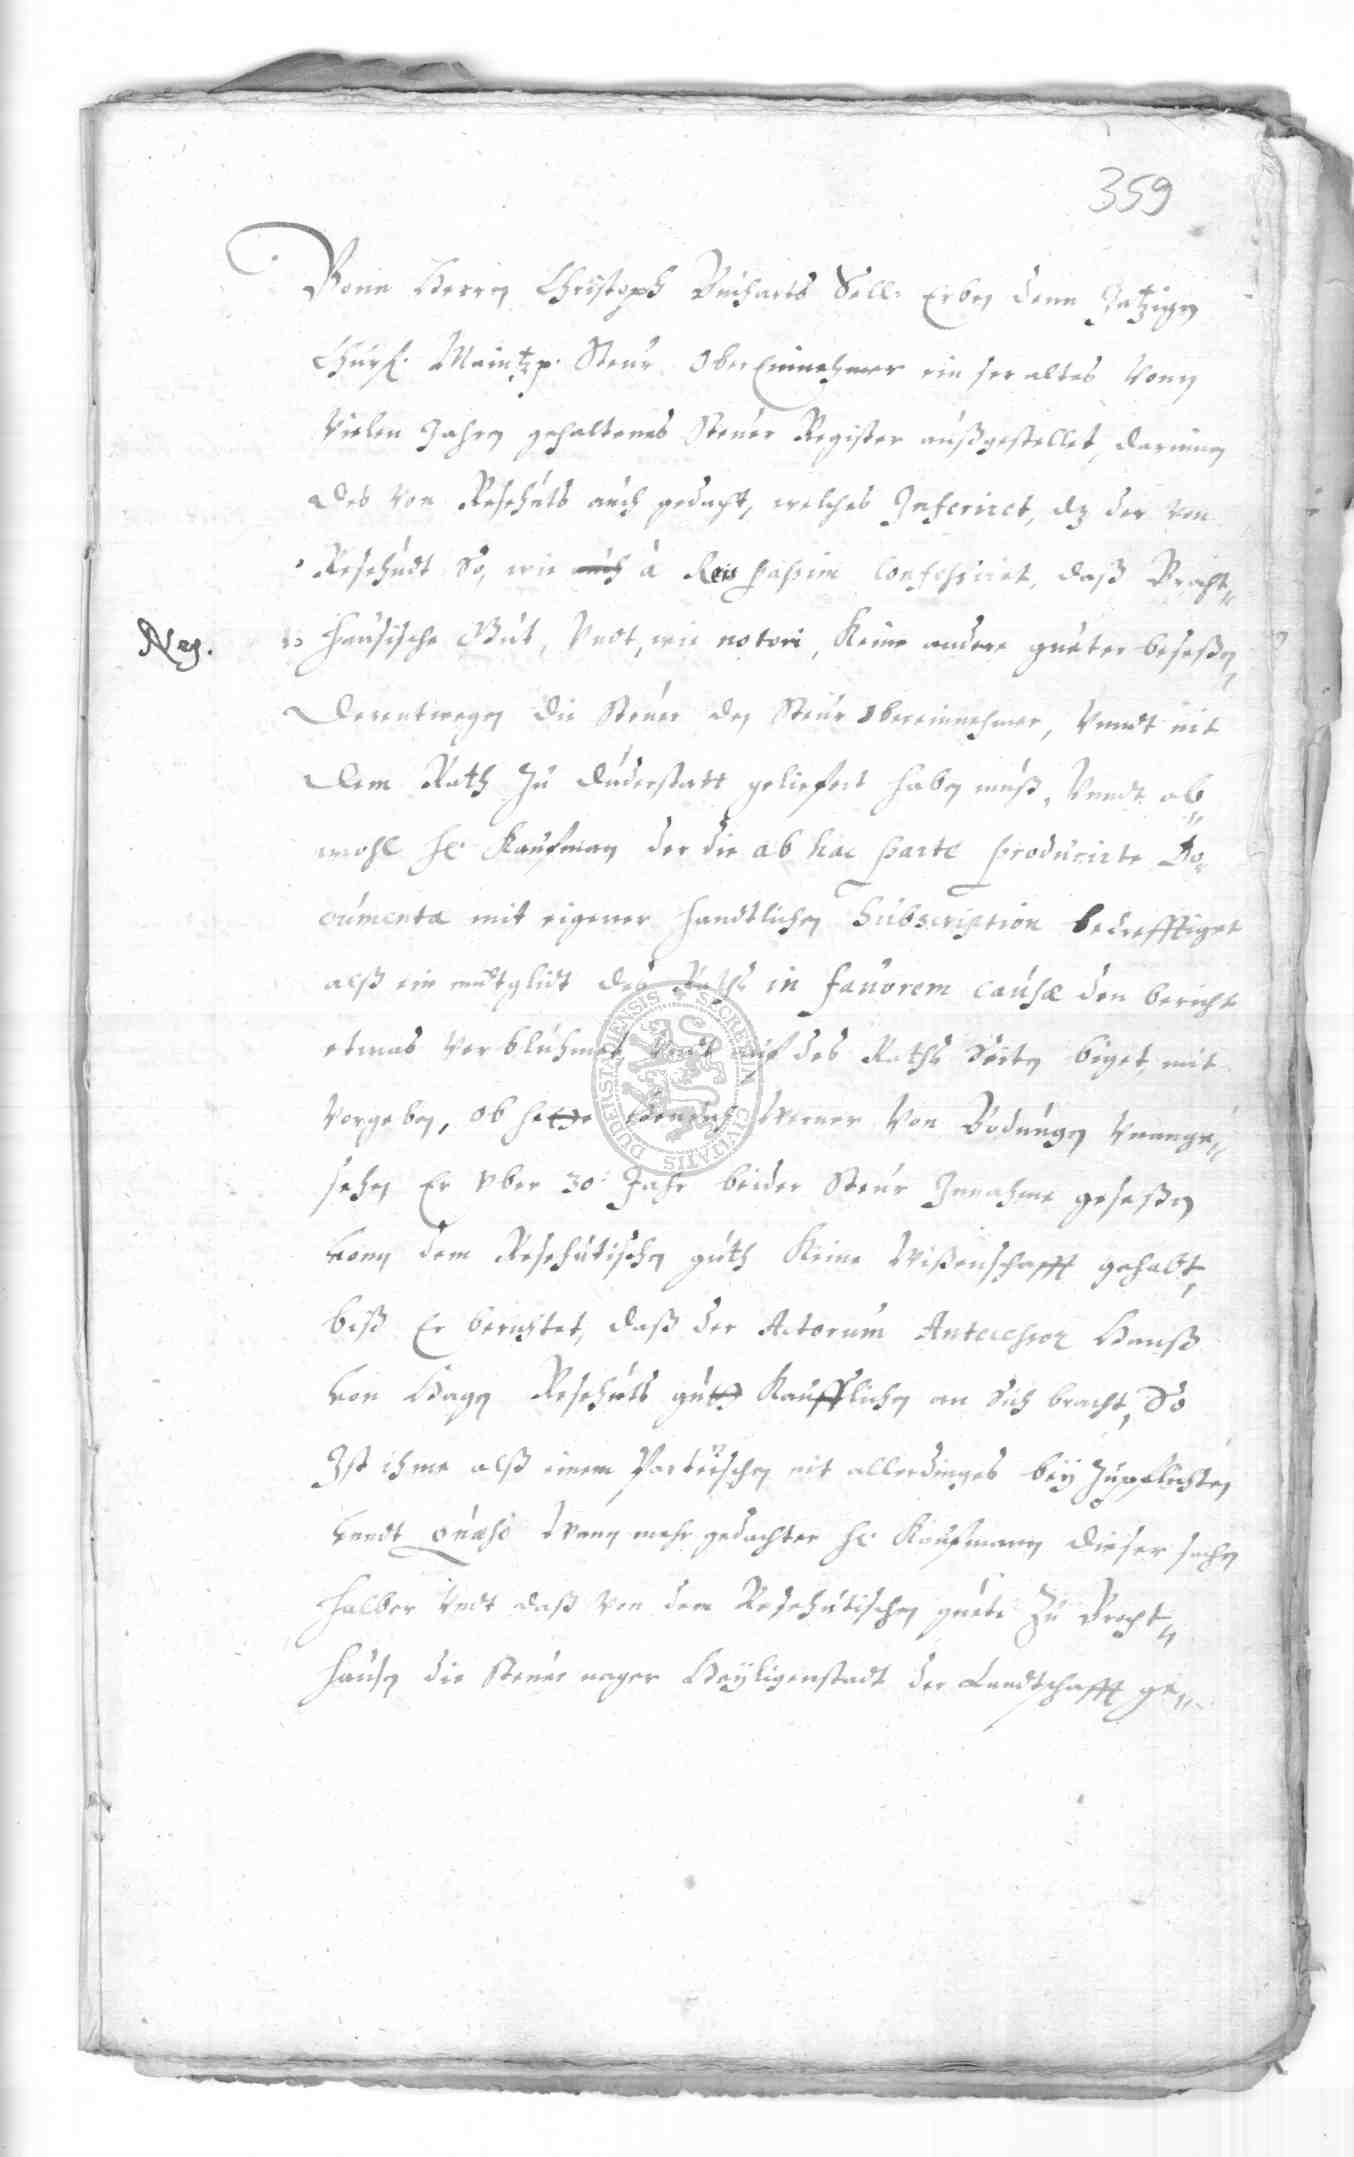 359
Vonn Herren Christoph Bucharts Sell: Erben denn Jetzigen
Churf. Maintzp. Steur Ober Einnehmer ein ser altes Vonn
Vielen Jahren gehaltenes Steuer Register außgestellet, darinnen
des Von Resehuts auch gedacht, welches Inferiret, dz der Von
Resehudt So, wie auch à Reis passim Confessiret, daß Brocht„
Neg.
hausische Gut, Undt, wie notori, Keine andere gueter beseßen
Derentwegen die Steuer den Steur Obereinnehmer, Unndt nit
Dem Rath Zu Duderstatt geliefert haben muß, Unndt ob„
wohl Hr. Kaufman der die ab hac parte producirte Do„
cumenta mit eigener handtlichen Subscription bekrefftiget
alß ein mitglidt des Raths in favorem causæ den bericht
etwas Verbluhmet Undt auf des Raths Seiten bieget, mit
Vorgeben, ob hette Heinrich Werner Von Bodungen Unange„
sehen Er Uber 30 Jahr beider Steur Innahme geseßen
Vonn dem Resehutischen guth Keine Wißenschafft gehabt,
biß Er berichtet, daß der Actorum Antecessor Hanß
Von Hagen Resehuts guth Kaufflichen an Sich bracht, So
Ist ihme alß einem Parteischen nit allerdinges bey Zupflichten
Unndt quæso Wann mehr gedachter Hr. Kaufmann dieser sachen
halber Undt daß Von dem Resehutischen guete Zu Brocht„
hausen die Steuer nager Heyligenstadt der Landtschafft ge„
SECRETUM CIVITATIS DUDERSTADENSIS